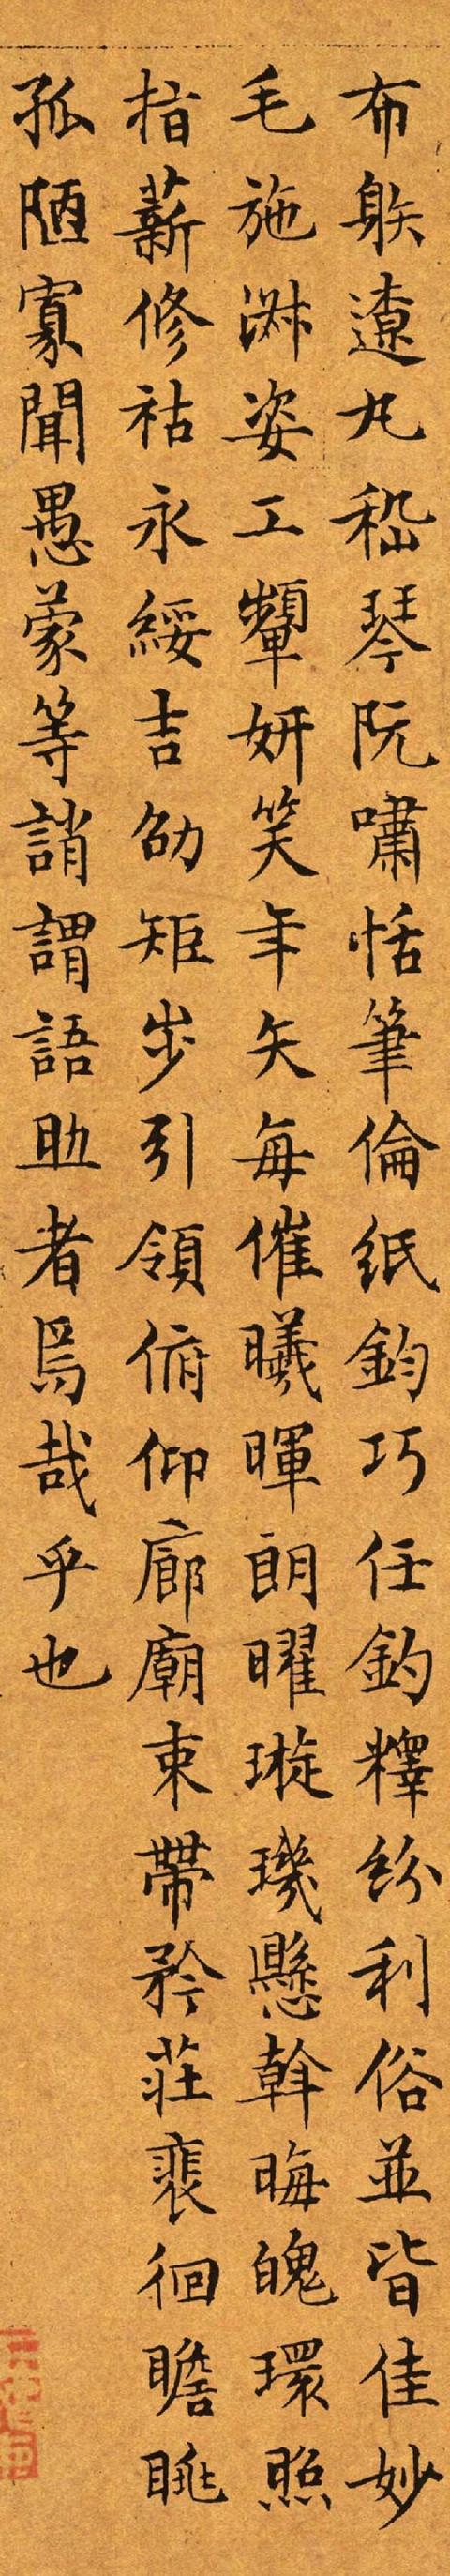 布䠶遼丸嵇琴阮嘯恬筆倫紙鈞巧任釣釋紛利俗並皆佳妙
毛施淑姿工顰妍笑年矢每催曦暉朗曜璇璣懸斡晦魄環照
指薪修祜永綏吉劭矩步引領俯仰廊廟束帶矜莊裵徊瞻眺
孤陋寡聞愚蒙等誚謂語助者焉哉乎也